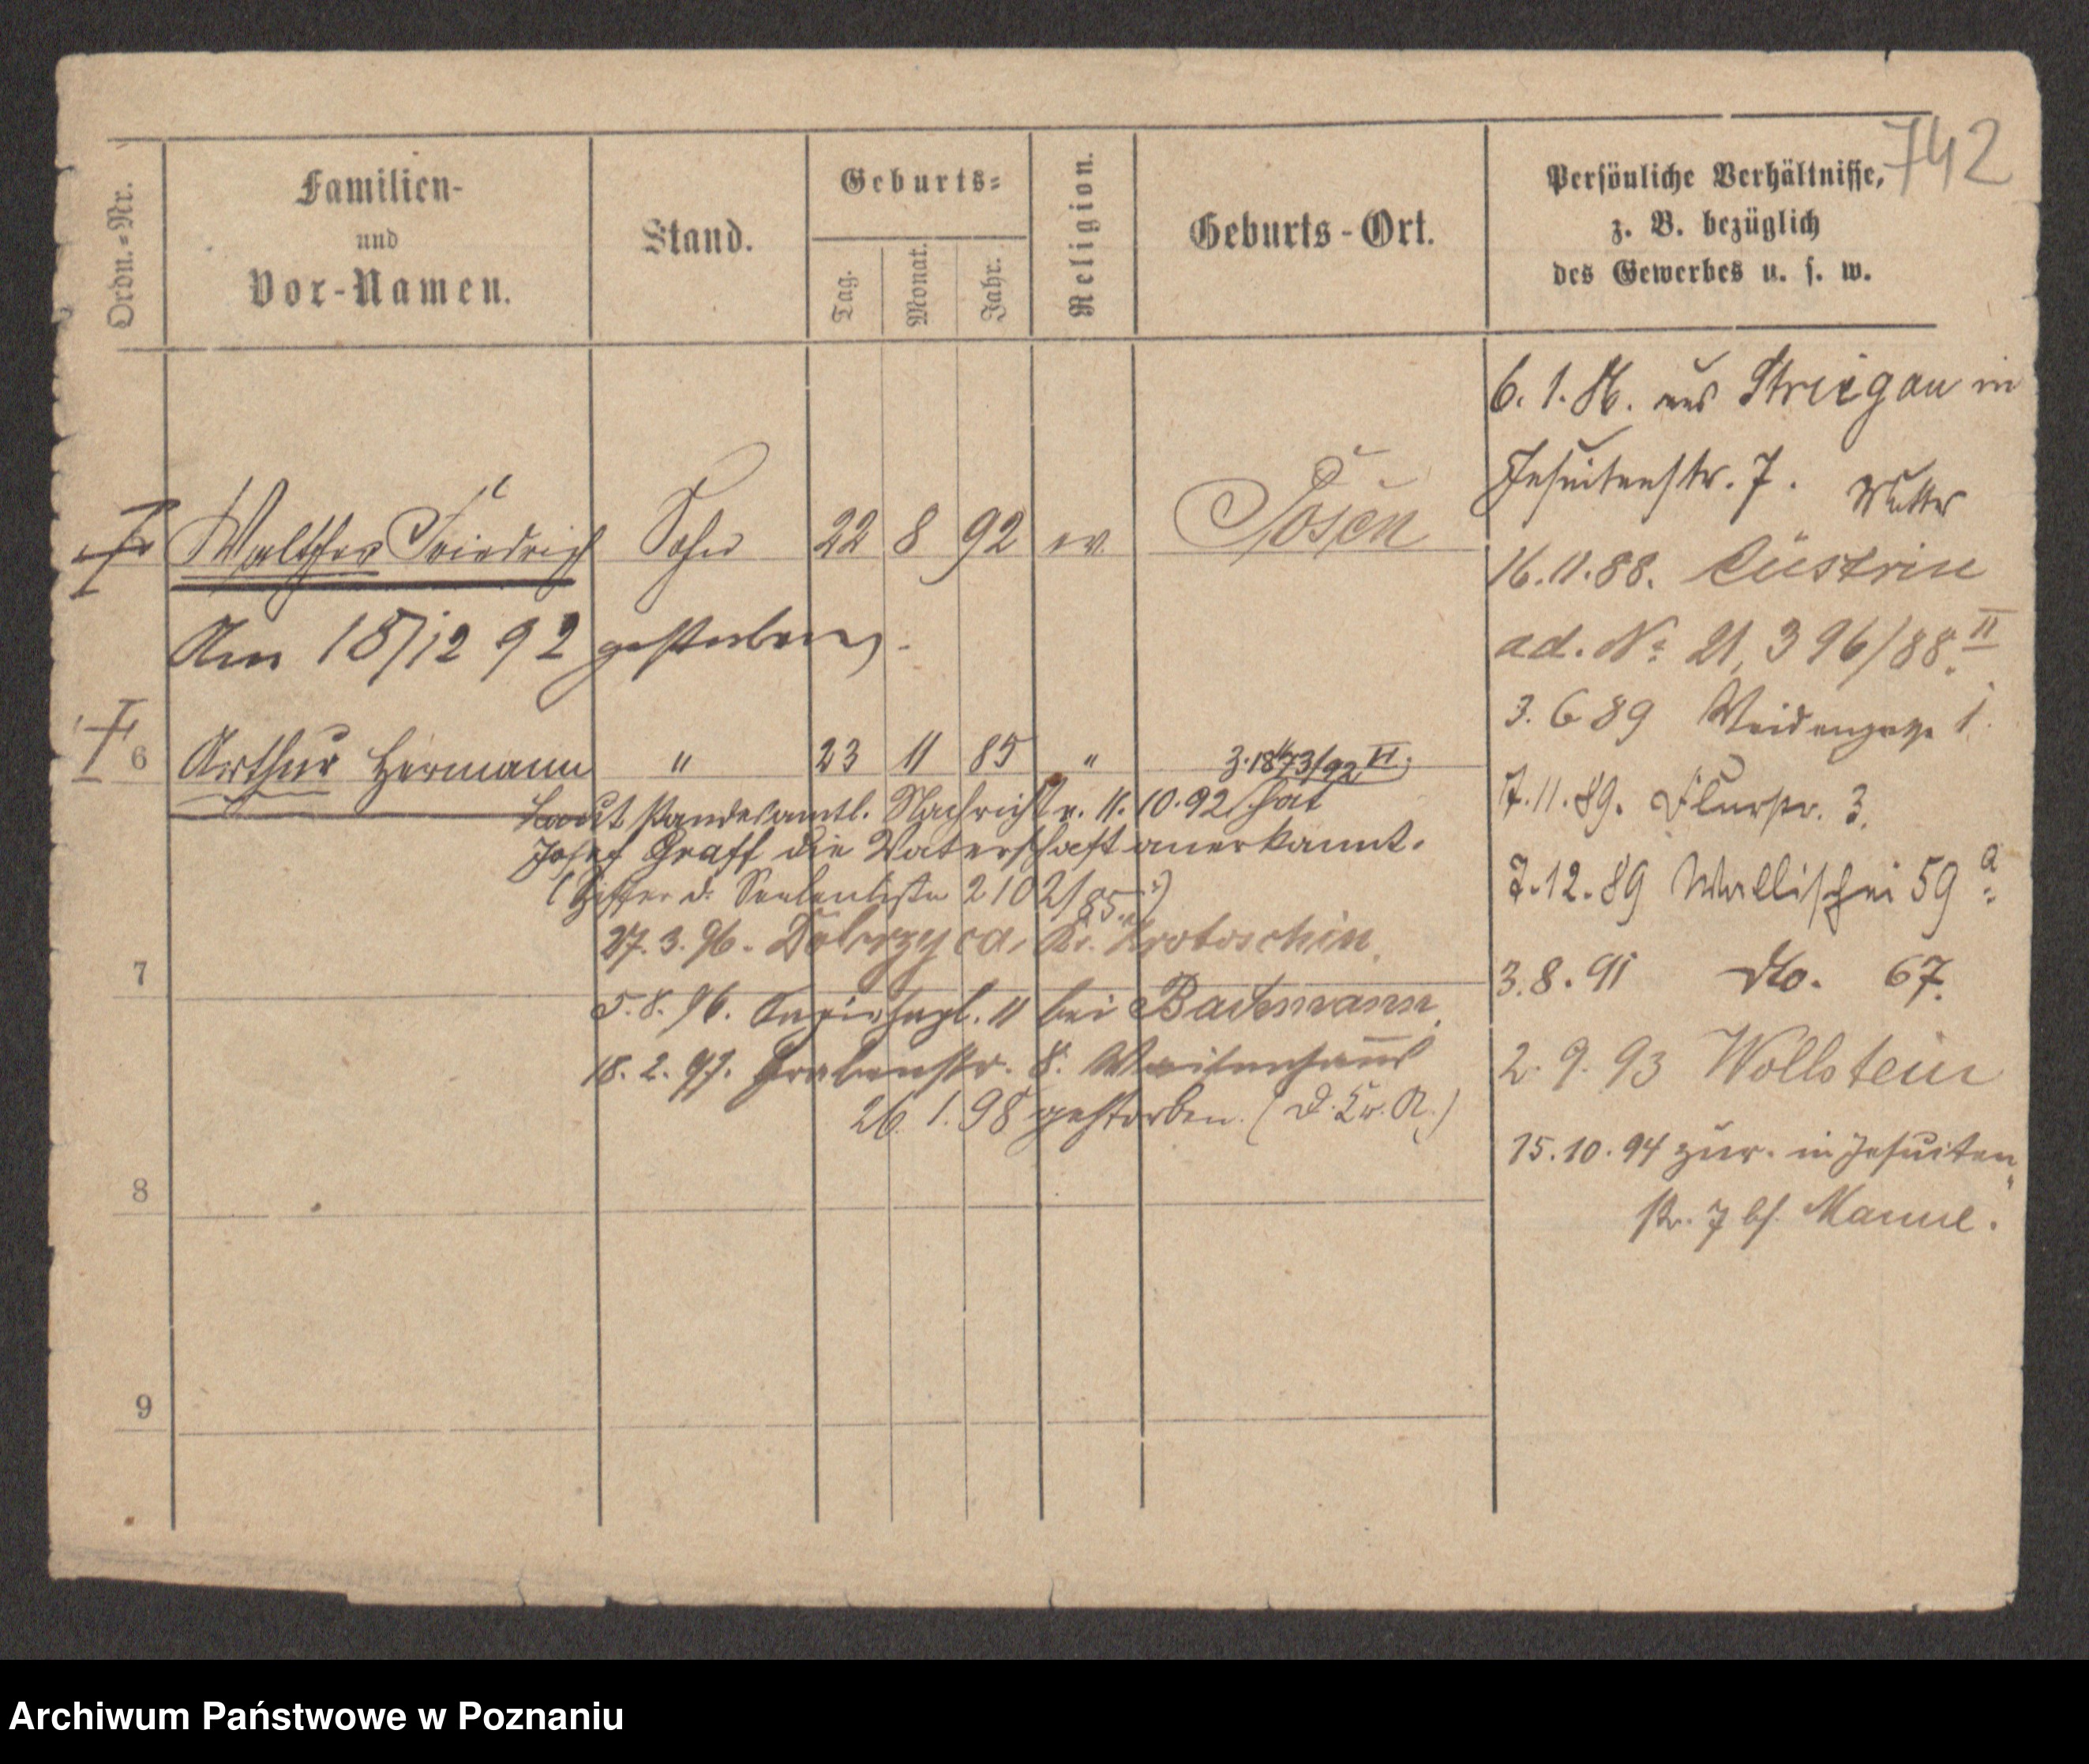 742
Ordn.-Nr.
Familien-
und
Vor-Namen.
Stand.
Geburts-
Tag.
Monat.
Jahr.
Religion.
Geburts-Ort.
Persönliche Verhältnisse,
z. B. bezüglich
des Gewerbes u. s. w.
Walther Friedrich Sohn 22 8 92 ev. Posen
Am 18/12 92 gestorben.
6 Arthur Hermann " 23 11 85 "
Laut standesamtl. Nachricht v. 11.10.92 hat
Josef Graff die Vaterschaft anerkannt.
(Ziffer d. Seelenliste 2102/85.)
27.3.96. Dobrzyca, Kr. Krotoschin.
7
5.8.96. 11 bei Bachmann.
18.2.97. Grabenstr. 8. Waisenhaus
26.1.98 gestorben.
8
9
6.1.86. aus Striegau in
Jesuitenstr. 7. Mutter
16.11.88. Cüstrin
ad. No. 21,396/88 II.
3.6 89 Weidengasse 1.
7.11.89. Flurstr. 3.
7.12.89 Wallischei 59 a.
3.8.91 dto. 67.
2.9.93 Wollstein
15.10.94 zur. in Jesuiten
str. 7 bei
Archiwum Państwowe w Poznaniu